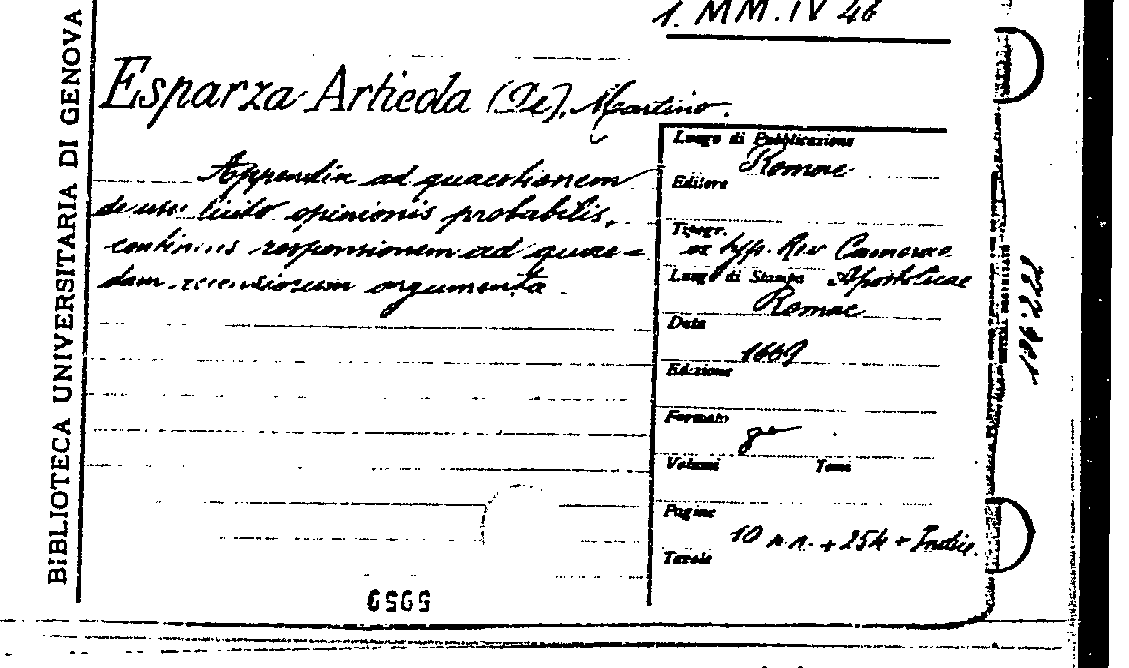 1. MM. IV 46
BIBLIOTECA UNIVERSITARIA DI GENOVA
Esparza Articola (De), Martino.
Appendix ad quaestionem
de usu licito opinionis probabilis,
continens responsionem ad quae-
dam recensiorum argumenta
Luogo di Pubblicazione
Romae
Editore
Tipogr.
ex typ. Rev Camerae
Apostolicae
Luogo di Stampa
Romae
Data
1669
Edizione
Formato
8°
Volumi Tomi
Pagine
10 n.n. + 254 + Indic.
Tavole